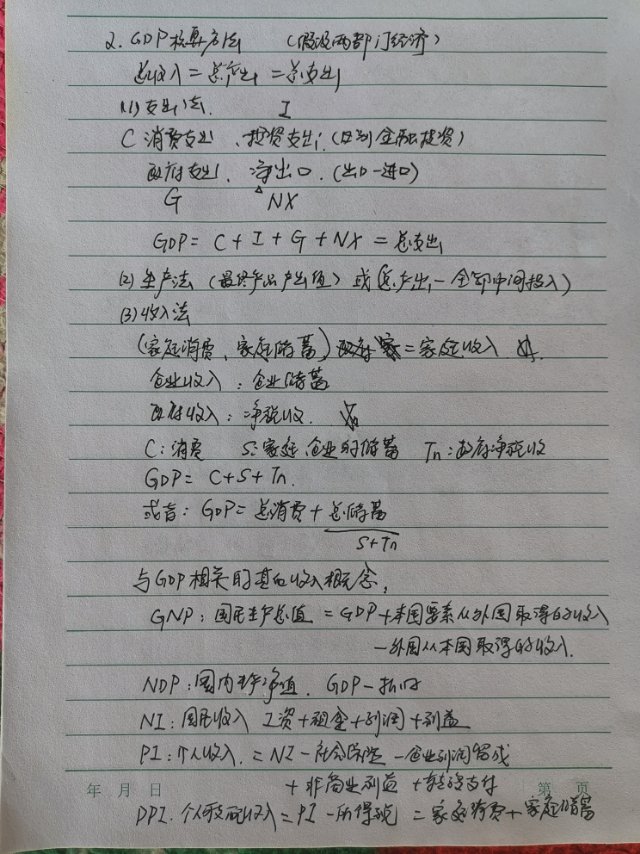 2. GDP核算方法 (假设两部门经济)
总收入 = 总产出 = 总支出
(1) 支出法. I
C 消费支出 、投资支出 (区别金融投资)
政府支出、净出口. (出口-进口)
G NX
GDP = C + I + G + NX = 总支出
(2) 生产法 (最终产品产出值) 或 (总产出 - 全部中间投入)
(3) 收入法
(家庭消费、家庭储蓄) = 家庭收入
企业收入: 企业储蓄
政府收入: 净税收.
C: 消费 S: 家庭、企业的储蓄 Tn: 政府净税收
GDP = C+S+Tn.
或者: GDP = 总消费 + 总储蓄
S+Tn
与GDP相关的其他收入概念,
GNP: 国民生产总值 = GDP + 本国要素从外国取得的收入
- 外国从本国取得的收入.
NDP: 国内生产净值. GDP - 折旧
NI: 国民收入 工资+租金+利润+利益
PI: 个人收入. = NI - 社会保险 - 企业利润留成
+ 非商业利益 + 转移支付
年 月 日 第 页
DPI. 个人可支配收入 = PI - 所得税 = 家庭消费 + 家庭储蓄